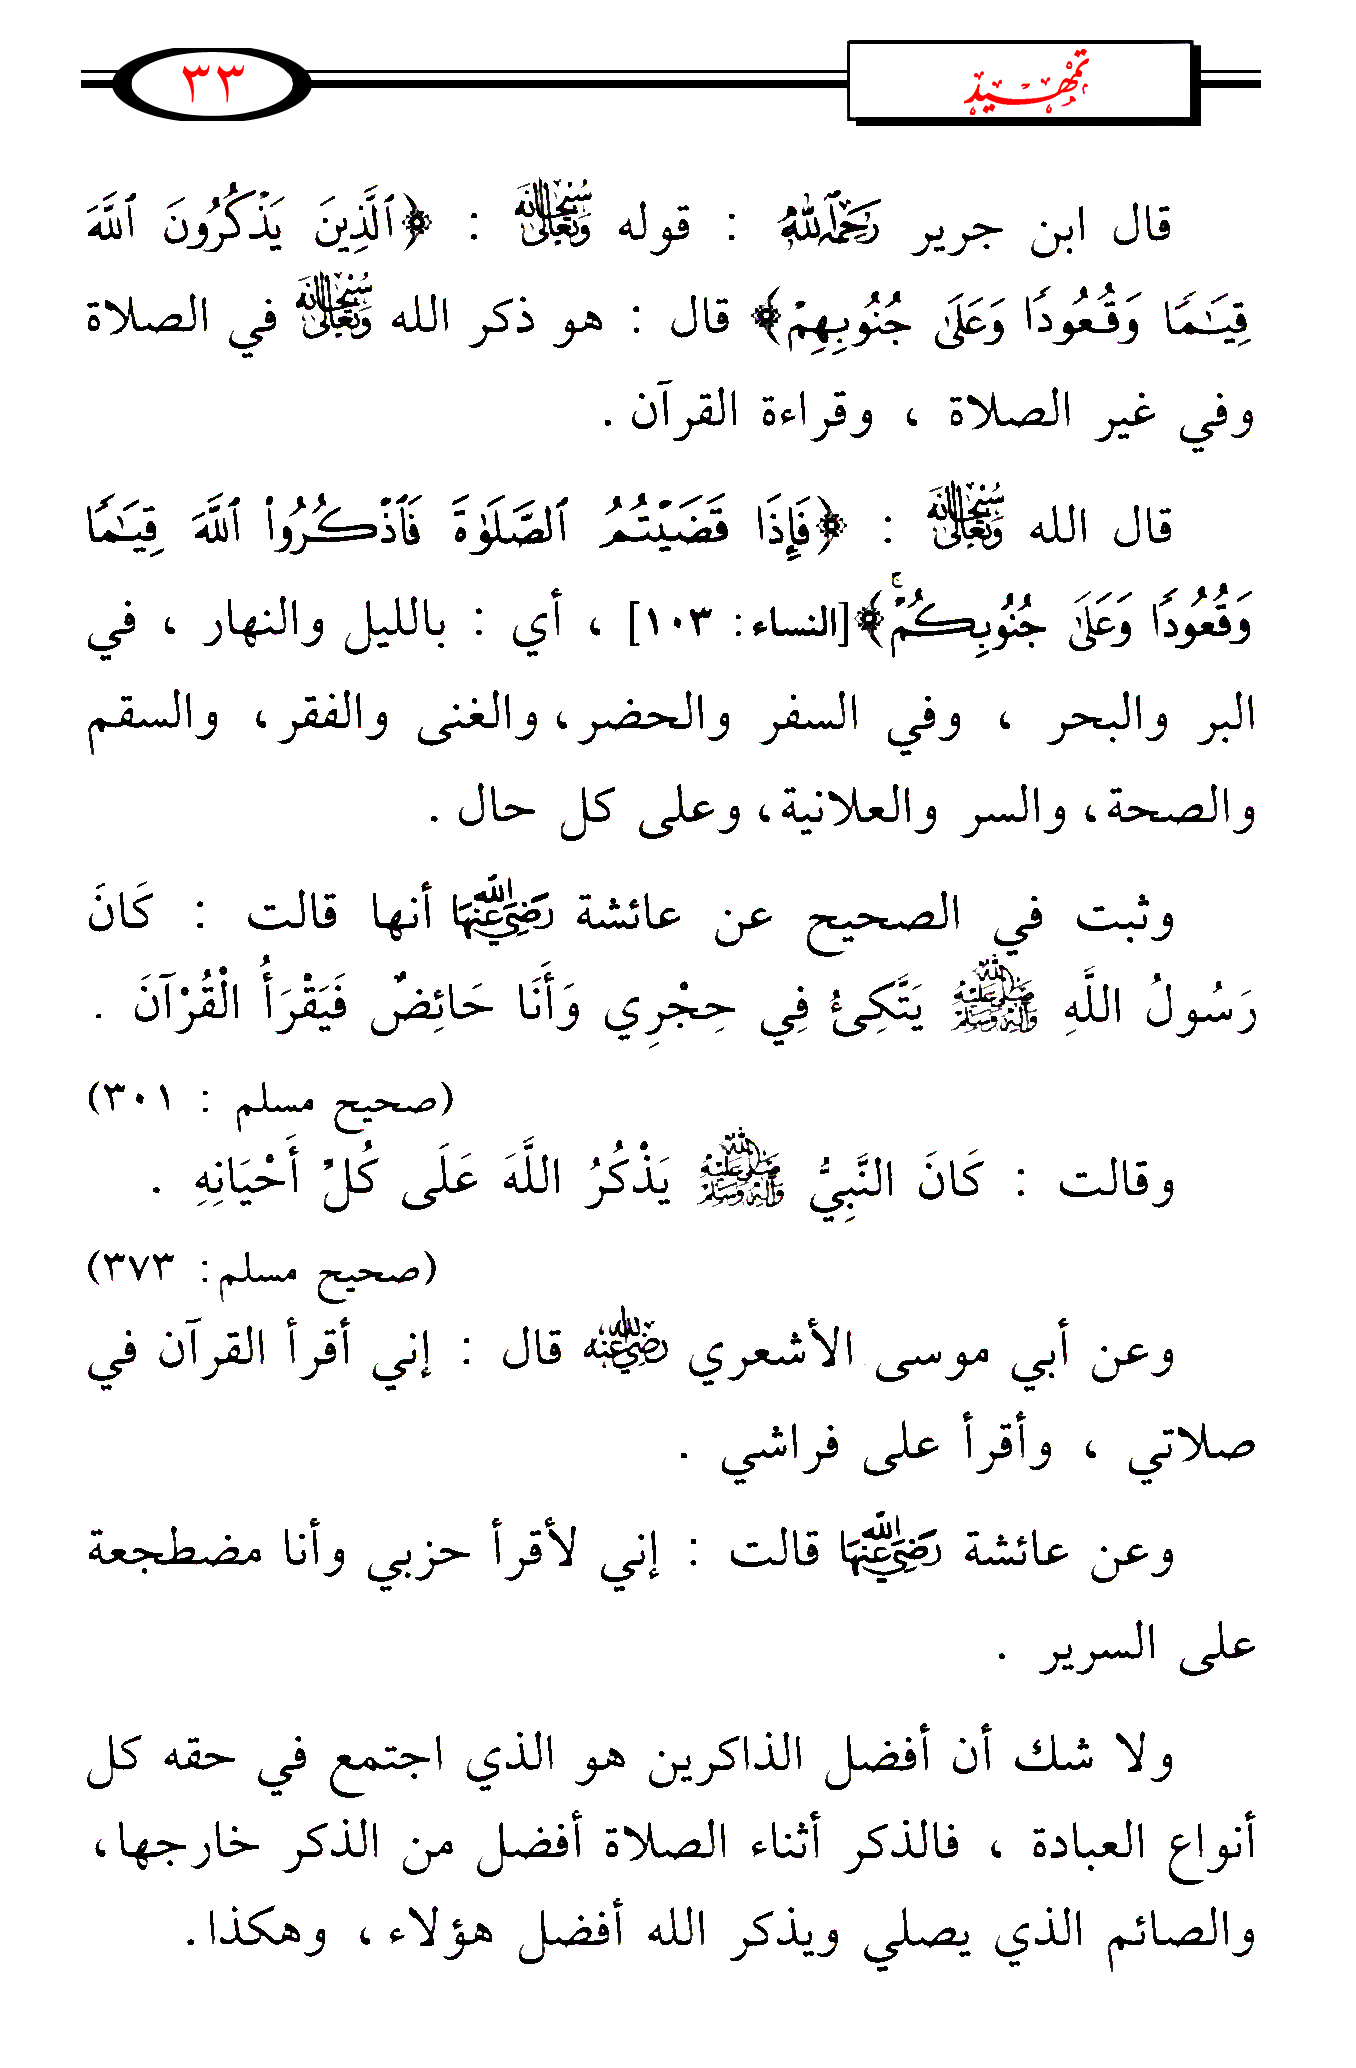 تمهيد
٣٣
قال ابن جرير رحمه الله : قوله سبحانه وتعالى : ﴿ٱلَّذِينَ يَذْكُرُونَ ٱللَّهَ
قِيَـٰمًا وَقُعُودًا وَعَلَىٰ جُنُوبِهِمْ﴾ قال : هو ذكر الله سبحانه وتعالى في الصلاة
وفي غير الصلاة ، وقراءة القرآن .
قال الله سبحانه وتعالى : ﴿فَإِذَا قَضَيْتُمُ ٱلصَّلَوٰةَ فَٱذْكُرُوا۟ ٱللَّهَ قِيَـٰمًا
وَقُعُودًا وَعَلَىٰ جُنُوبِكُمْ ۚ﴾[النساء: ١٠٣] ، أي : بالليل والنهار ، في
البر والبحر ، وفي السفر والحضر، والغنى والفقر، والسقم
والصحة، والسر والعلانية، وعلى كل حال .
وثبت في الصحيح عن عائشة رضي الله عنها أنها قالت : كَانَ
رَسُولُ اللَّهِ صلى الله عليه وآله وسلم يَتَّكِئُ فِي حِجْرِي وَأَنَا حَائِضٌ فَيَقْرَأُ الْقُرْآنَ .
(صحيح مسلم : ٣٠١)
وقالت : كَانَ النَّبِيُّ صلى الله عليه وآله وسلم يَذْكُرُ اللَّهَ عَلَى كُلِّ أَحْيَانِهِ .
(صحيح مسلم: ٣٧٣)
وعن أبي موسى الأشعري رضي الله عنه قال : إني أقرأ القرآن في
صلاتي ، وأقرأ على فراشي .
وعن عائشة رضي الله عنها قالت : إني لأقرأ حزبي وأنا مضطجعة
على السرير .
ولا شك أن أفضل الذاكرين هو الذي اجتمع في حقه كل
أنواع العبادة ، فالذكر أثناء الصلاة أفضل من الذكر خارجها،
والصائم الذي يصلي ويذكر الله أفضل هؤلاء، وهكذا.